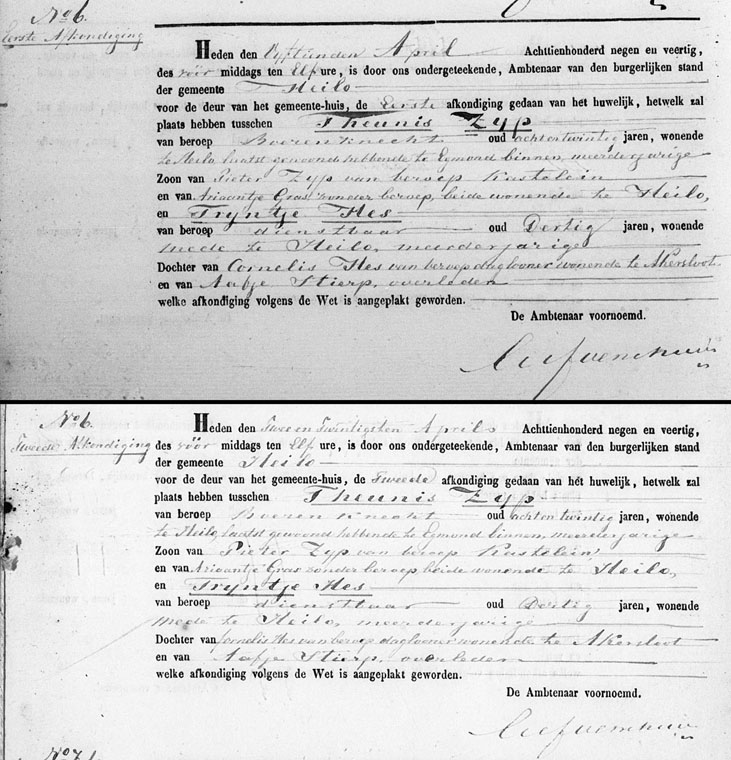 No 6.
Eerste Afkondiging
Heden den Vyftienden April Achttienhonderd negen en veertig,
des vóór middags ten Elf ure, is door ons ondergeteekende, Ambtenaar van den burgerlijken stand
der gemeente Heilo
voor de deur van het gemeente-huis, de Eerste afkondiging gedaan van het huwelijk, hetwelk zal
plaats hebben tusschen Theunis Zyp
van beroep Boerenknecht oud achtentwintig jaren, wonende
te Heilo, laatst gewoond hebbende te Egmond binnen, meerderjarige
Zoon van Pieter Zyp van beroep Kastelein
en van Ariaantje Gras zonder beroep, beide wonende te Heilo,
en Tryntje Hes
van beroep dienstbaar oud Dertig jaren, wonende
mede te Heilo, meerderjarige
Dochter van Cornelis Hes van beroep daglooner wonende te Akersloot
en van Aafje Stierp, overleden
welke afkondiging volgens de Wet is aangeplakt geworden.
De Ambtenaar voornoemd.
No 6.
Tweede Afkondiging
Heden den Twee en Twintigsten April Achttienhonderd negen en veertig,
des vóór middags ten Elf ure, is door ons ondergeteekende, Ambtenaar van den burgerlijken stand
der gemeente Heilo
voor de deur van het gemeente-huis, de Tweede afkondiging gedaan van hét huwelijk, hetwelk zal
plaats hebben tusschen Theunis Zyp
van beroep Boerenknecht oud achtentwintig jaren, wonende
te Heilo, laatst gewoond hebbende te Egmond binnen, meerderjarige
Zoon van Pieter Zyp van beroep Kastelein
en van Ariaantje Gras zonder beroep beide wonende te Heilo,
en Tryntje Hes
van beroep dienstbaar oud Dertig jaren, wonende
mede te Heilo, meerderjarige
Dochter van Cornelis Hes van beroep daglooner wonende te Akersloot
en van Aafje Stierp, overleden
welke afkondiging volgens de Wet is aangeplakt geworden.
De Ambtenaar voornoemd.
No 7.